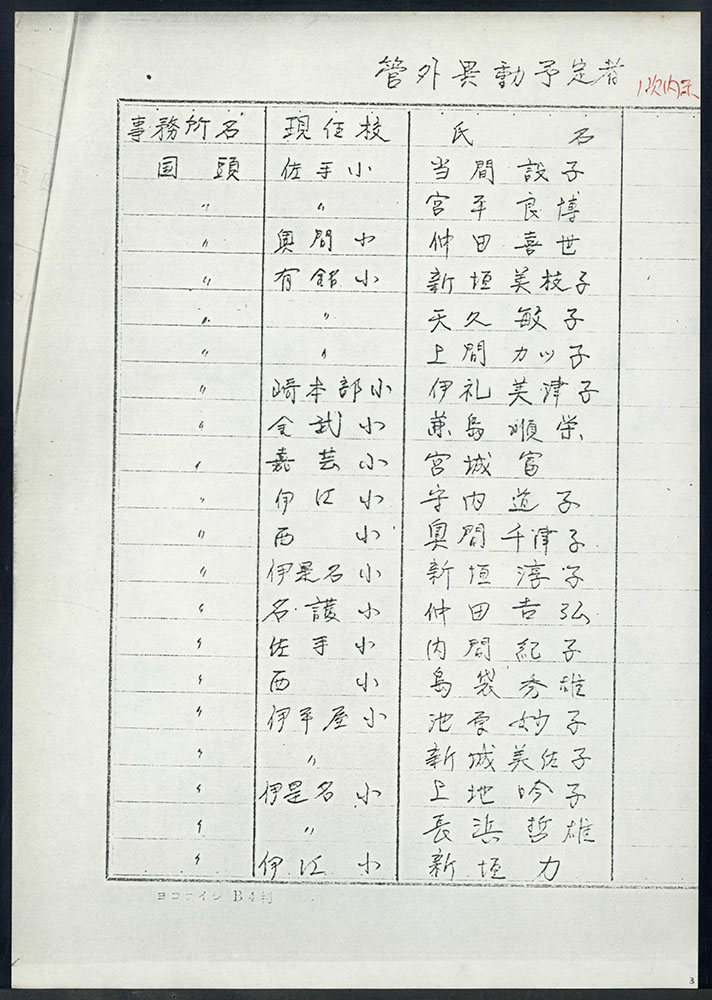 管外異動予定者
1次内示
事務所名 現任校 氏 名
国 頭 佐手小 当間設子
〃 〃 宮平良博
〃 奥間小 仲田喜世
〃 有銘小 新垣美枝子
〃 〃 天久敏子
〃 〃 上間カツ子
〃 崎本部小 伊礼美津子
〃 金武小 兼島順栄
〃 嘉芸小 宮城富
〃 伊江小 守内道子
〃 西 小 奥間千津子
〃 伊是名小 新垣淳子
〃 名護小 仲田吉弘
〃 佐手小 内間紀子
〃 西 小 島袋秀雄
〃 伊平屋小 池原妙子
〃 〃 新城美佐子
〃 伊是名小 上地吟子
〃 〃 長浜哲雄
〃 伊江小 新垣力
B4判
3